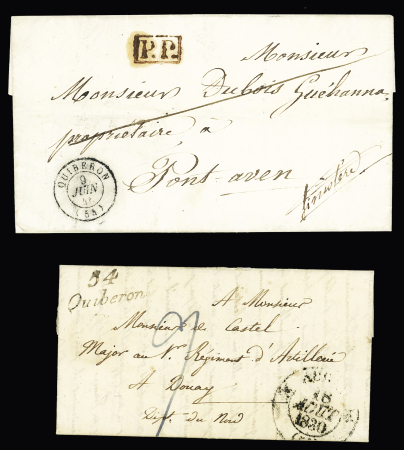 P.P.
Monsieur
Monsieur Dubois Guéhanno
propriétaire à
Pont-aven
finistère
QUIBERON
9
JUIN
(54)
54
Quiberon
A Monsieur
Monsieur de Castel
Major au Régiment d'Artillerie
A Douay
Dépt. du Nord
18
AOUT
1830